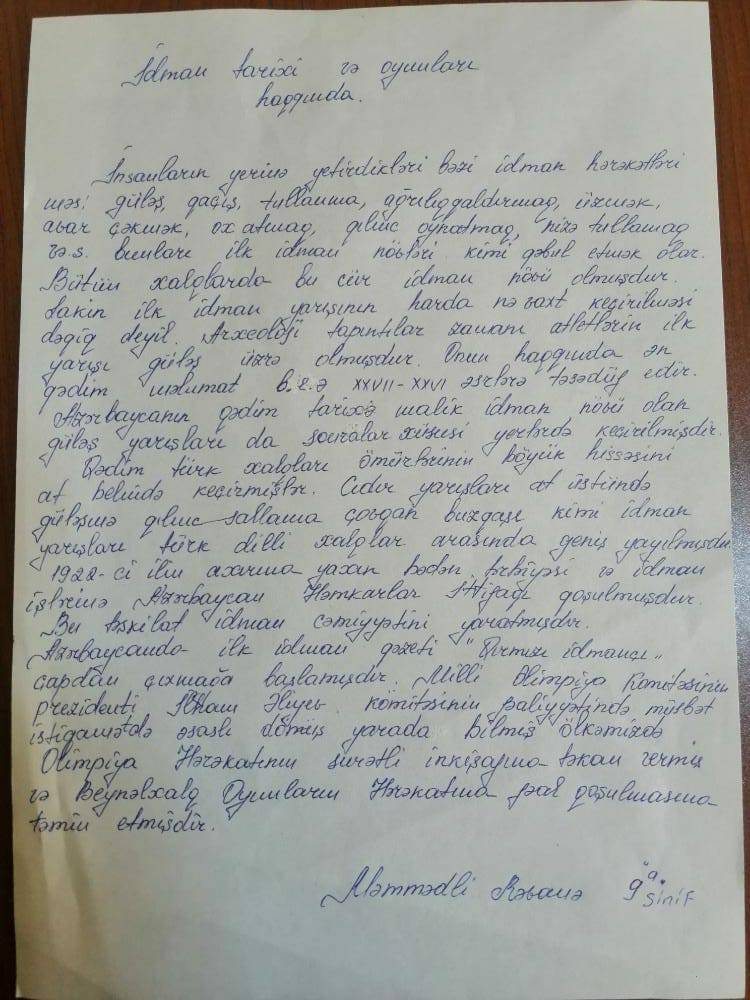 İdman tarixi və oyunları
haqqında.
İnsanların yerinə yetirdikləri bəzi idman hərəkətləri
məs: güləş, qaçış, tullanma, ağrılıqqaldırmaq, üzmək,
avar çəkmək, ox atmaq, qılınc oynatmaq, nizə tullamaq
və.s. bunları ilk idman növləri kimi qəbul etmək olar.
Bütün xalqlarda bu cür idman növü olmuşdur.
Lakin ilk idman yarışının harda nə vaxt keçirilməsi
dəqiq deyil. Arxeoloji tapıntılar zamanı atletlərin ilk
yarışı güləş üzrə olmuşdur. Onun haqqında ən
qədim məlumat b.e.ə XXVII-XXVI əsrlərə təsadüf edir.
Azərbaycanın qədim tarixə malik idman növü olan
güləş yarışları da sonralar xüsusi yerlərdə keçirilmişdir.
Qədim türk xalqları ömürlərinin böyük hissəsini
at belində keçirmişlər. Cıdır yarışları at üstündə
güləşmə qılınc sallama çovqan buzqaşı kimi idman
yarışları türk dilli xalqlar arasında geniş yayılmışdır
1922-ci ilin axarına yaxan bədən tərbiyəsi və idman
işlərinə Azərbaycan Həmkarlar İttifaqı qoşulmuşdur.
Bu təşkilat idman cəmiyyətini yaratmışdır.
Azərbaycanda ilk idman qəzeti "Qırmızı idmançı"
çapdan çıxmağa başlamışdır. Milli Olimpiya Komitəsinin
prezidenti İlham Əliyev komitəsinin fəaliyyətində müsbət
istiqamətdə əsaslı dönüş yarada bilmiş ölkəmizdə
Olimpiya Hərəkatının surətli inkişafına təkan vermiş
və Beynəlxalq Oyunların Hərəkatına fəal qoşulmasına
təmin etmişdir.
Məmmədli Rəvanə 9 "a" sinif